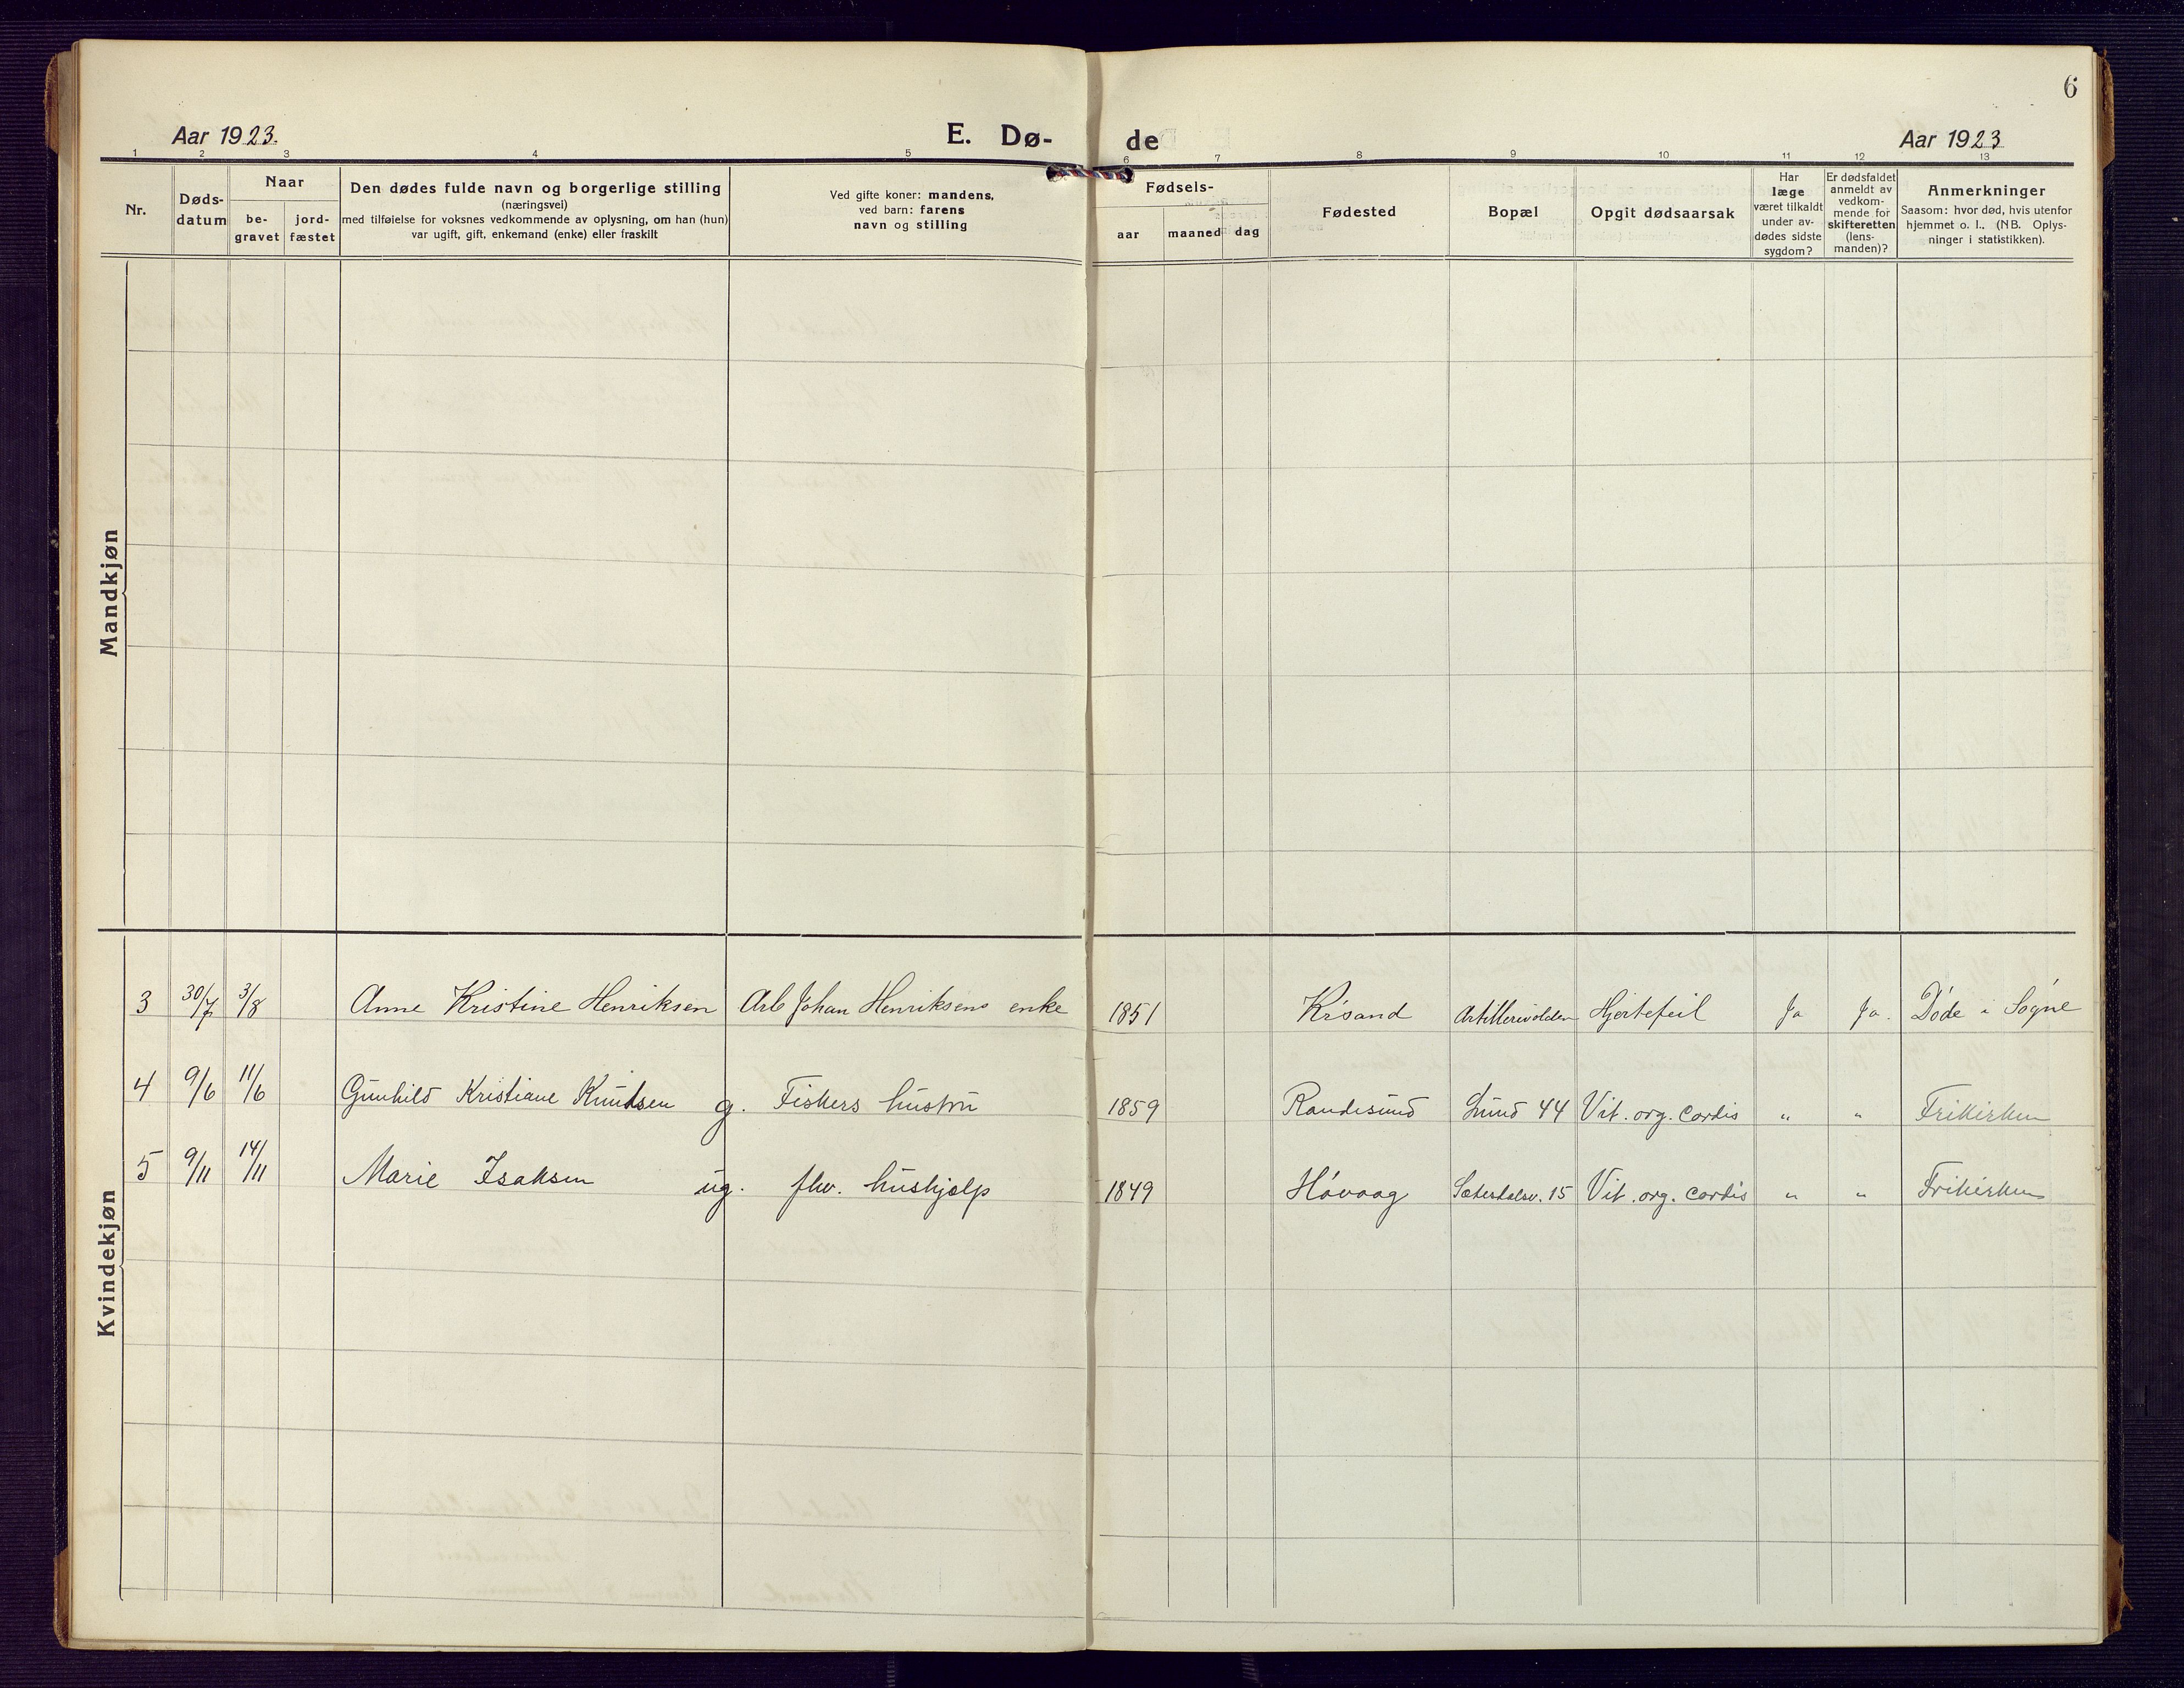 6
Aar 1923. E. Dø- de Aar 1923
1 2 3 4 5 6 7 8 9 10 11 12 13
Nr.
Døds-
datum
Naar
be-
gravet
jord-
fæstet
Den dødes fulde navn og borgerlige stilling
(næringsvei)
med tilføielse for voksnes vedkommende av oplysning, om han (hun)
var ugift, gift, enkemand (enke) eller fraskilt
Ved gifte koner: mandens,
ved barn: farens
navn og stilling
Fødsels-
aar
maaned
dag
Fødested
Bopæl
Opgit dødsaarsak
Har
læge
været tilkaldt
under av-
dødes sidste
sygdom?
Er dødsfaldet
anmeldt av
vedkom-
mende for
skifteretten
(lens-
manden)?
Anmerkninger
Saasom: hvor død, hvis utenfor
hjemmet o. l.. (NB. Oplys-
ninger i statistikken).
Mandkjøn
Kvindekjøn
3 30/7 3/8 Anne Kristine Henriksen Arb Johan Henriksens enke 1851 Kr'sand Artillerivolden Hjertefeil Ja Ja. Døde i Søgne
4 9/6 11/6 Gunhild Kristiane Knudsen g. Fiskers hustru 1859 Randesund Lund 44 Vit. org. cordis " " Frikirken
5 9/11 14/11 Marie Isaksen ug. fhv. hushjælp 1849 Høvaag Sæterdalsv. 15 Vit. org. cordis " " Frikirken